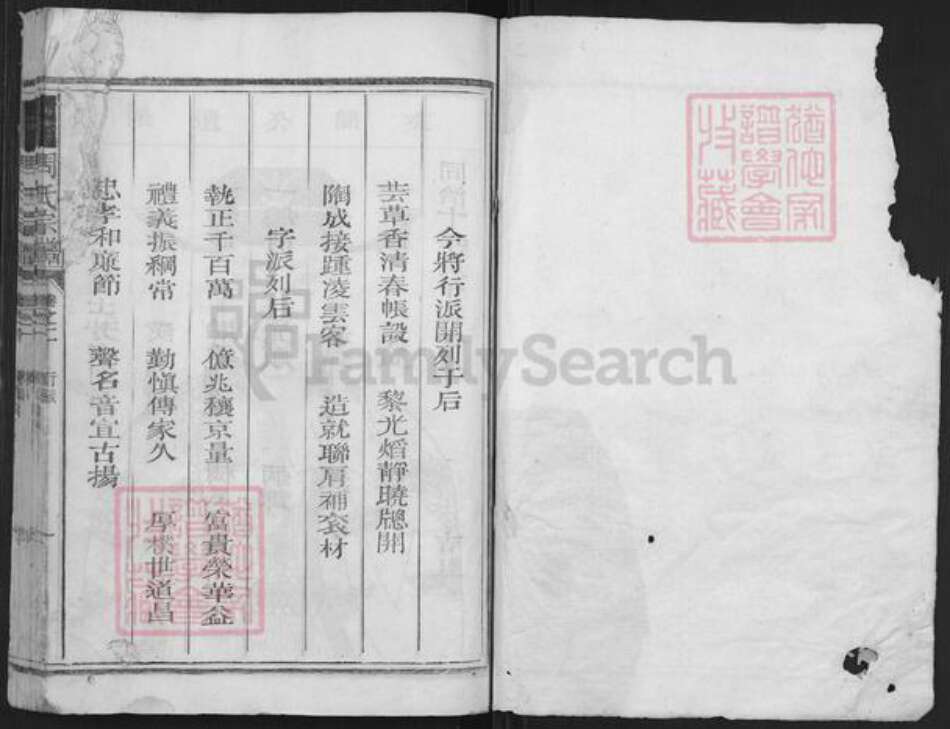 今將行派開列于后
芸草香清春帳設 黎光熖靜曉牕開
陶成接踵凌雲客 造就聯肩補袞材
字派列后
執正千百萬 億兆穰京量 富貴榮華益
禮義振綱常 勤慎傳家久 厚樸世道昌
忠孝和廉節 聲名音宣古揚
周氏宗譜
FamilySearch
譜學會
收藏